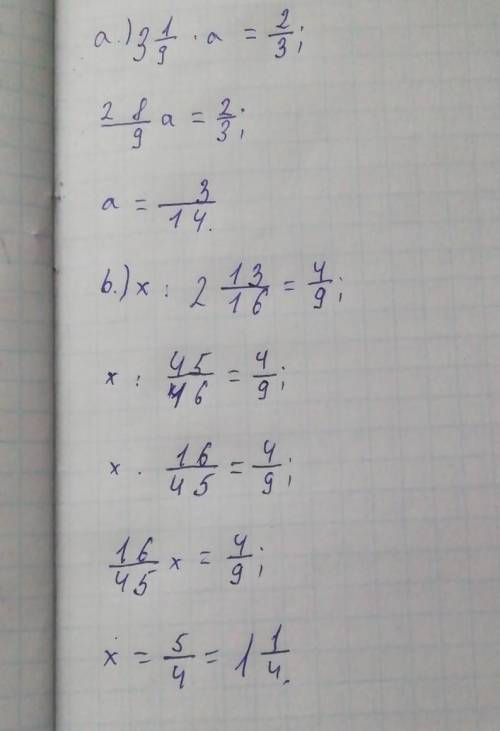 a.) 3 1/9 · a = 2/3;
28/9 a = 2/3;
a = 3/14.
b.) x : 2 13/16 = 4/9;
x : 45/16 = 4/9;
x · 16/45 = 4/9;
16/45 x = 4/9;
x = 5/4 = 1 1/4.